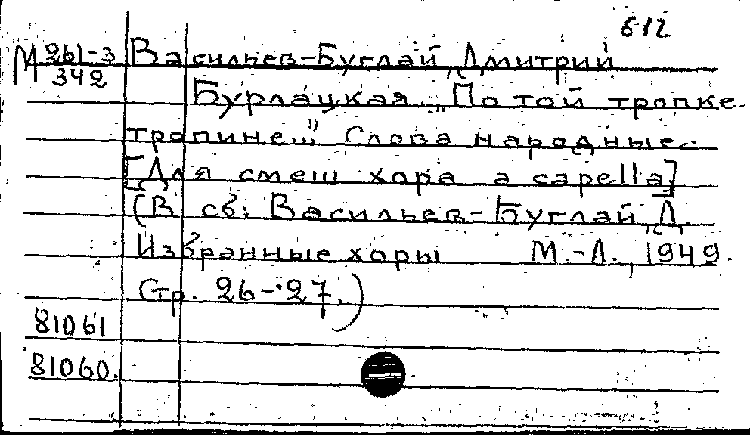 612
М 261-3 Васильев-Буглай, Дмитрий
342
Бурлацкая „По той тропке-
тропине..." Слова народные.
[Для смеш хора a capella]
(В сб: Васильев-Буглай, Д.
Избранные хоры М.-Л., 1949.
Стр. 26-27.)
81061
81060.